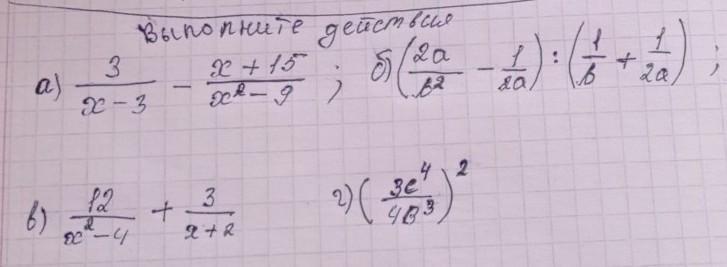 Выполните действия
а) 3/(x-3) - (x+15)/(x²-9) ; б) (2a/b² - 1/2a) : (1/b + 1/2a) ;
в) 12/(x²-4) + 3/(x+2) г) (3c⁴/4b³)²